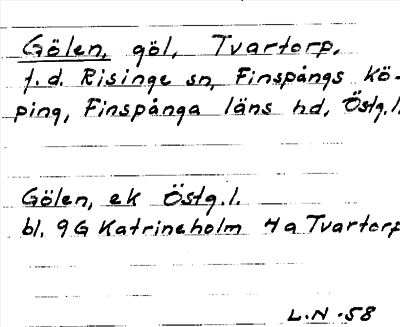 Gölen, göl, Tvartorp,
f.d. Risinge sn, Finspångs kö-
ping, Finspånga läns hd, Östg.l.
Gölen, ek Östg.l.
bl. 9G Katrineholm 4a Tvartorp
L.N -58